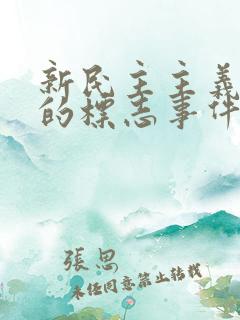 新民主主義
的標志事件
張思
未经同意禁止转载